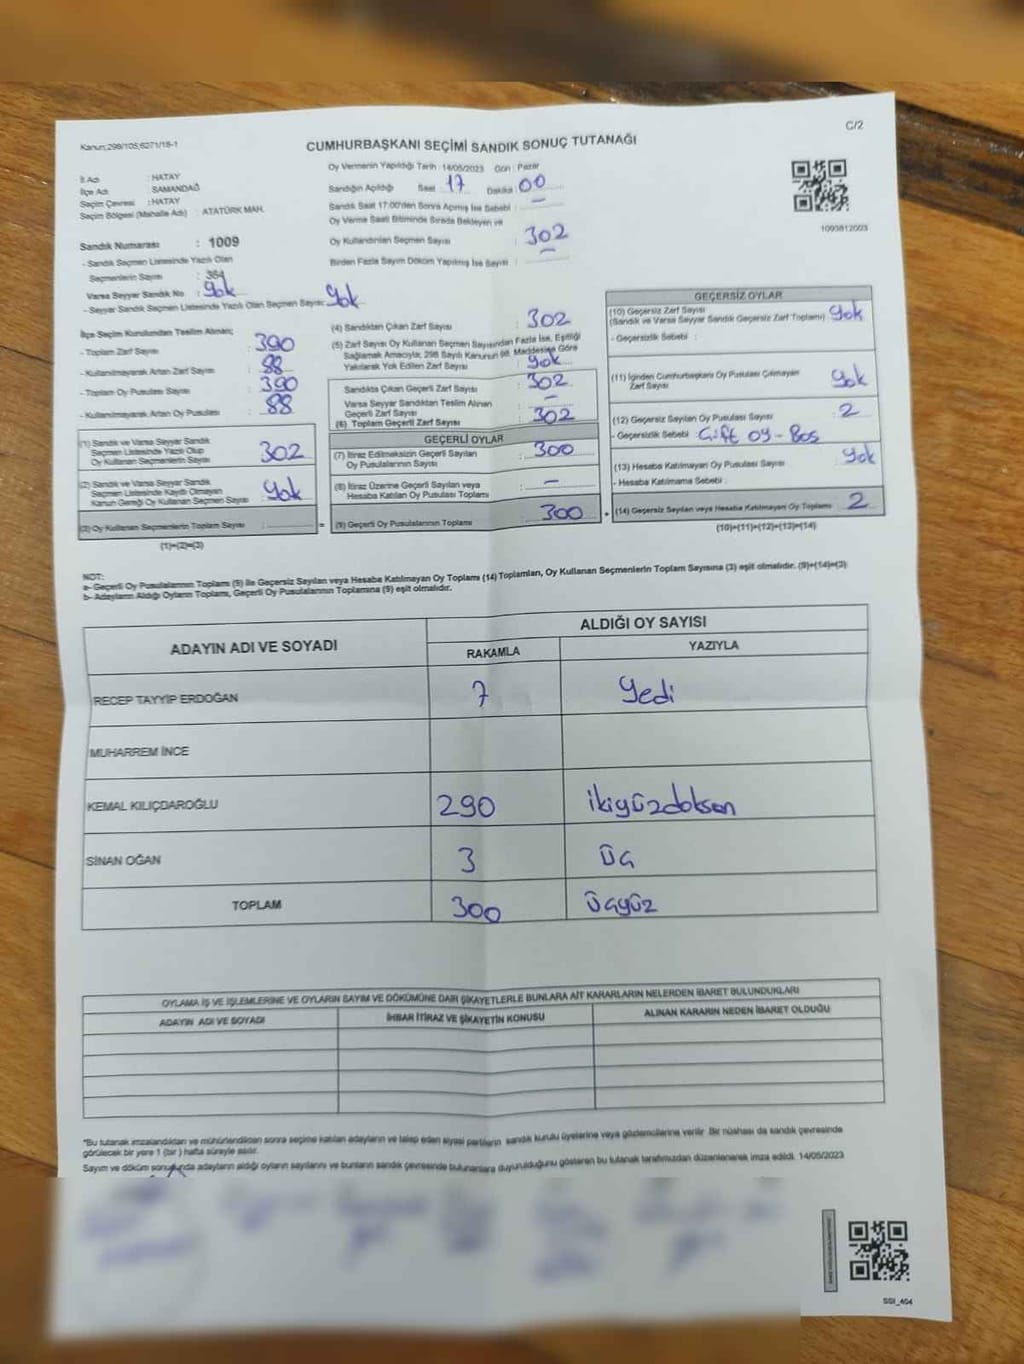 Kanun:298/105,6271/18-1
C/2
CUMHURBAŞKANI SEÇİMİ SANDIK SONUÇ TUTANAĞI
İl Adı : HATAY
İlçe Adı : SAMANDAĞ
Seçim Çevresi : HATAY
Seçim Bölgesi (Mahalle Adı) : ATATÜRK MAH.
Sandık Numarası : 1009
- Sandık Seçmen Listesinde Yazılı Olan
Seçmenlerin Sayısı : 364
Varsa Seyyar Sandık No : Yok
- Seyyar Sandık Seçmen Listesinde Yazılı Olan Seçmen Sayısı: Yok
Oy Vermenin Yapıldığı Tarih : 14/05/2023 Gün : Pazar
Sandığın Açıldığı Saat 17 Dakika 00
Sandık Saat 17:00'den Sonra Açılmış İse Sebebi : —
Oy Verme Saati Bitiminde Sırada Bekleyen ve
Oy Kullandırılan Seçmen Sayısı : 302
Birden Fazla Sayım Döküm Yapılmış İse Sayısı : —
1093812003
İlçe Seçim Kurulundan Teslim Alınan;
- Toplam Zarf Sayısı : 390
- Kullanılmayarak Artan Zarf Sayısı : 88
- Toplam Oy Pusulası Sayısı : 390
- Kullanılmayarak Artan Oy Pusulası : 88
(1) Sandık ve Varsa Seyyar Sandık
Seçmen Listesinde Yazılı Olup
Oy Kullanan Seçmenlerin Sayısı : 302
(2) Sandık ve Varsa Seyyar Sandık
Seçmen Listesinde Kaydı Olmayan
Kanun Gereği Oy Kullanan Seçmen Sayısı : Yok
(3) Oy Kullanan Seçmenlerin Toplam Sayısı :
(1)+(2)=(3)
(4) Sandıktan Çıkan Zarf Sayısı : 302
(5) Zarf Sayısı Oy Kullanan Seçmen Sayısından Fazla İse, Eşitliği
Sağlamak Amacıyla; 298 Sayılı Kanunun 98. Maddesine Göre
Yakılarak Yok Edilen Zarf Sayısı : Yok
Sandıkta Çıkan Geçerli Zarf Sayısı : 302
Varsa Seyyar Sandıktan Teslim Alınan
Geçerli Zarf Sayısı : —
(6) Toplam Geçerli Zarf Sayısı : 302
GEÇERLİ OYLAR
(7) İtiraz Edilmeksizin Geçerli Sayılan
Oy Pusulalarının Sayısı : 300
(8) İtiraz Üzerine Geçerli Sayılan veya
Hesaba Katılan Oy Pusulası Toplamı : —
= (9) Geçerli Oy Pusulalarının Toplamı : 300
GEÇERSİZ OYLAR
(10) Geçersiz Zarf Sayısı
(Sandık ve Varsa Seyyar Sandık Geçersiz Zarf Toplamı) : Yok
- Geçersizlik Sebebi :
(11) İçinden Cumhurbaşkanı Oy Pusulası Çıkmayan
Zarf Sayısı : Yok
(12) Geçersiz Sayılan Oy Pusulası Sayısı : 2
- Geçersizlik Sebebi : Çift oy - Boş
(13) Hesaba Katılmayan Oy Pusulası Sayısı : Yok
- Hesaba Katılmama Sebebi :
+ (14) Geçersiz Sayılan veya Hesaba Katılmayan Oy Toplamı : 2
(10)+(11)+(12)+(13)=(14)
NOT:
a- Geçerli Oy Pusulalarının Toplamı (9) ile Geçersiz Sayılan veya Hesaba Katılmayan Oy Toplamı (14) Toplamları, Oy Kullanan Seçmenlerin Toplam Sayısına (3) eşit olmalıdır. (9)+(14)=(3)
b- Adayların Aldığı Oyların Toplamı, Geçerli Oy Pusulalarının Toplamına (9) eşit olmalıdır.
ADAYIN ADI VE SOYADI
ALDIĞI OY SAYISI
RAKAMLA YAZIYLA
RECEP TAYYİP ERDOĞAN 7 Yedi
MUHARREM İNCE
KEMAL KILIÇDAROĞLU 290 ikiyüzdoksan
SİNAN OĞAN 3 Üç
TOPLAM 300 Üçyüz
OYLAMA İŞ VE İŞLEMLERİNE VE OYLARIN SAYIM VE DÖKÜMÜNE DAİR ŞİKAYETLERLE BUNLARA AİT KARARLARIN NELERDEN İBARET BULUNDUKLARI
ADAYIN ADI VE SOYADI İHBAR İTİRAZ VE ŞİKAYETİN KONUSU ALINAN KARARIN NEDEN İBARET OLDUĞU
*Bu tutanak imzalandıktan ve mühürlendikten sonra seçime katılan adayların ve talep eden siyasi partilerin sandık kurulu üyelerine veya gözlemcilerine verilir. Bir nüshası da sandık çevresinde
görülecek bir yere 1 (bir ) hafta süreyle asılır.
Sayım ve döküm sonucunda adayların aldığı oyların sayılarını ve bunların sandık çevresinde bulunanlara duyurulduğunu gösteren bu tutanak tarafımızdan düzenlenerek imza edildi. 14/05/2023
SSI_404